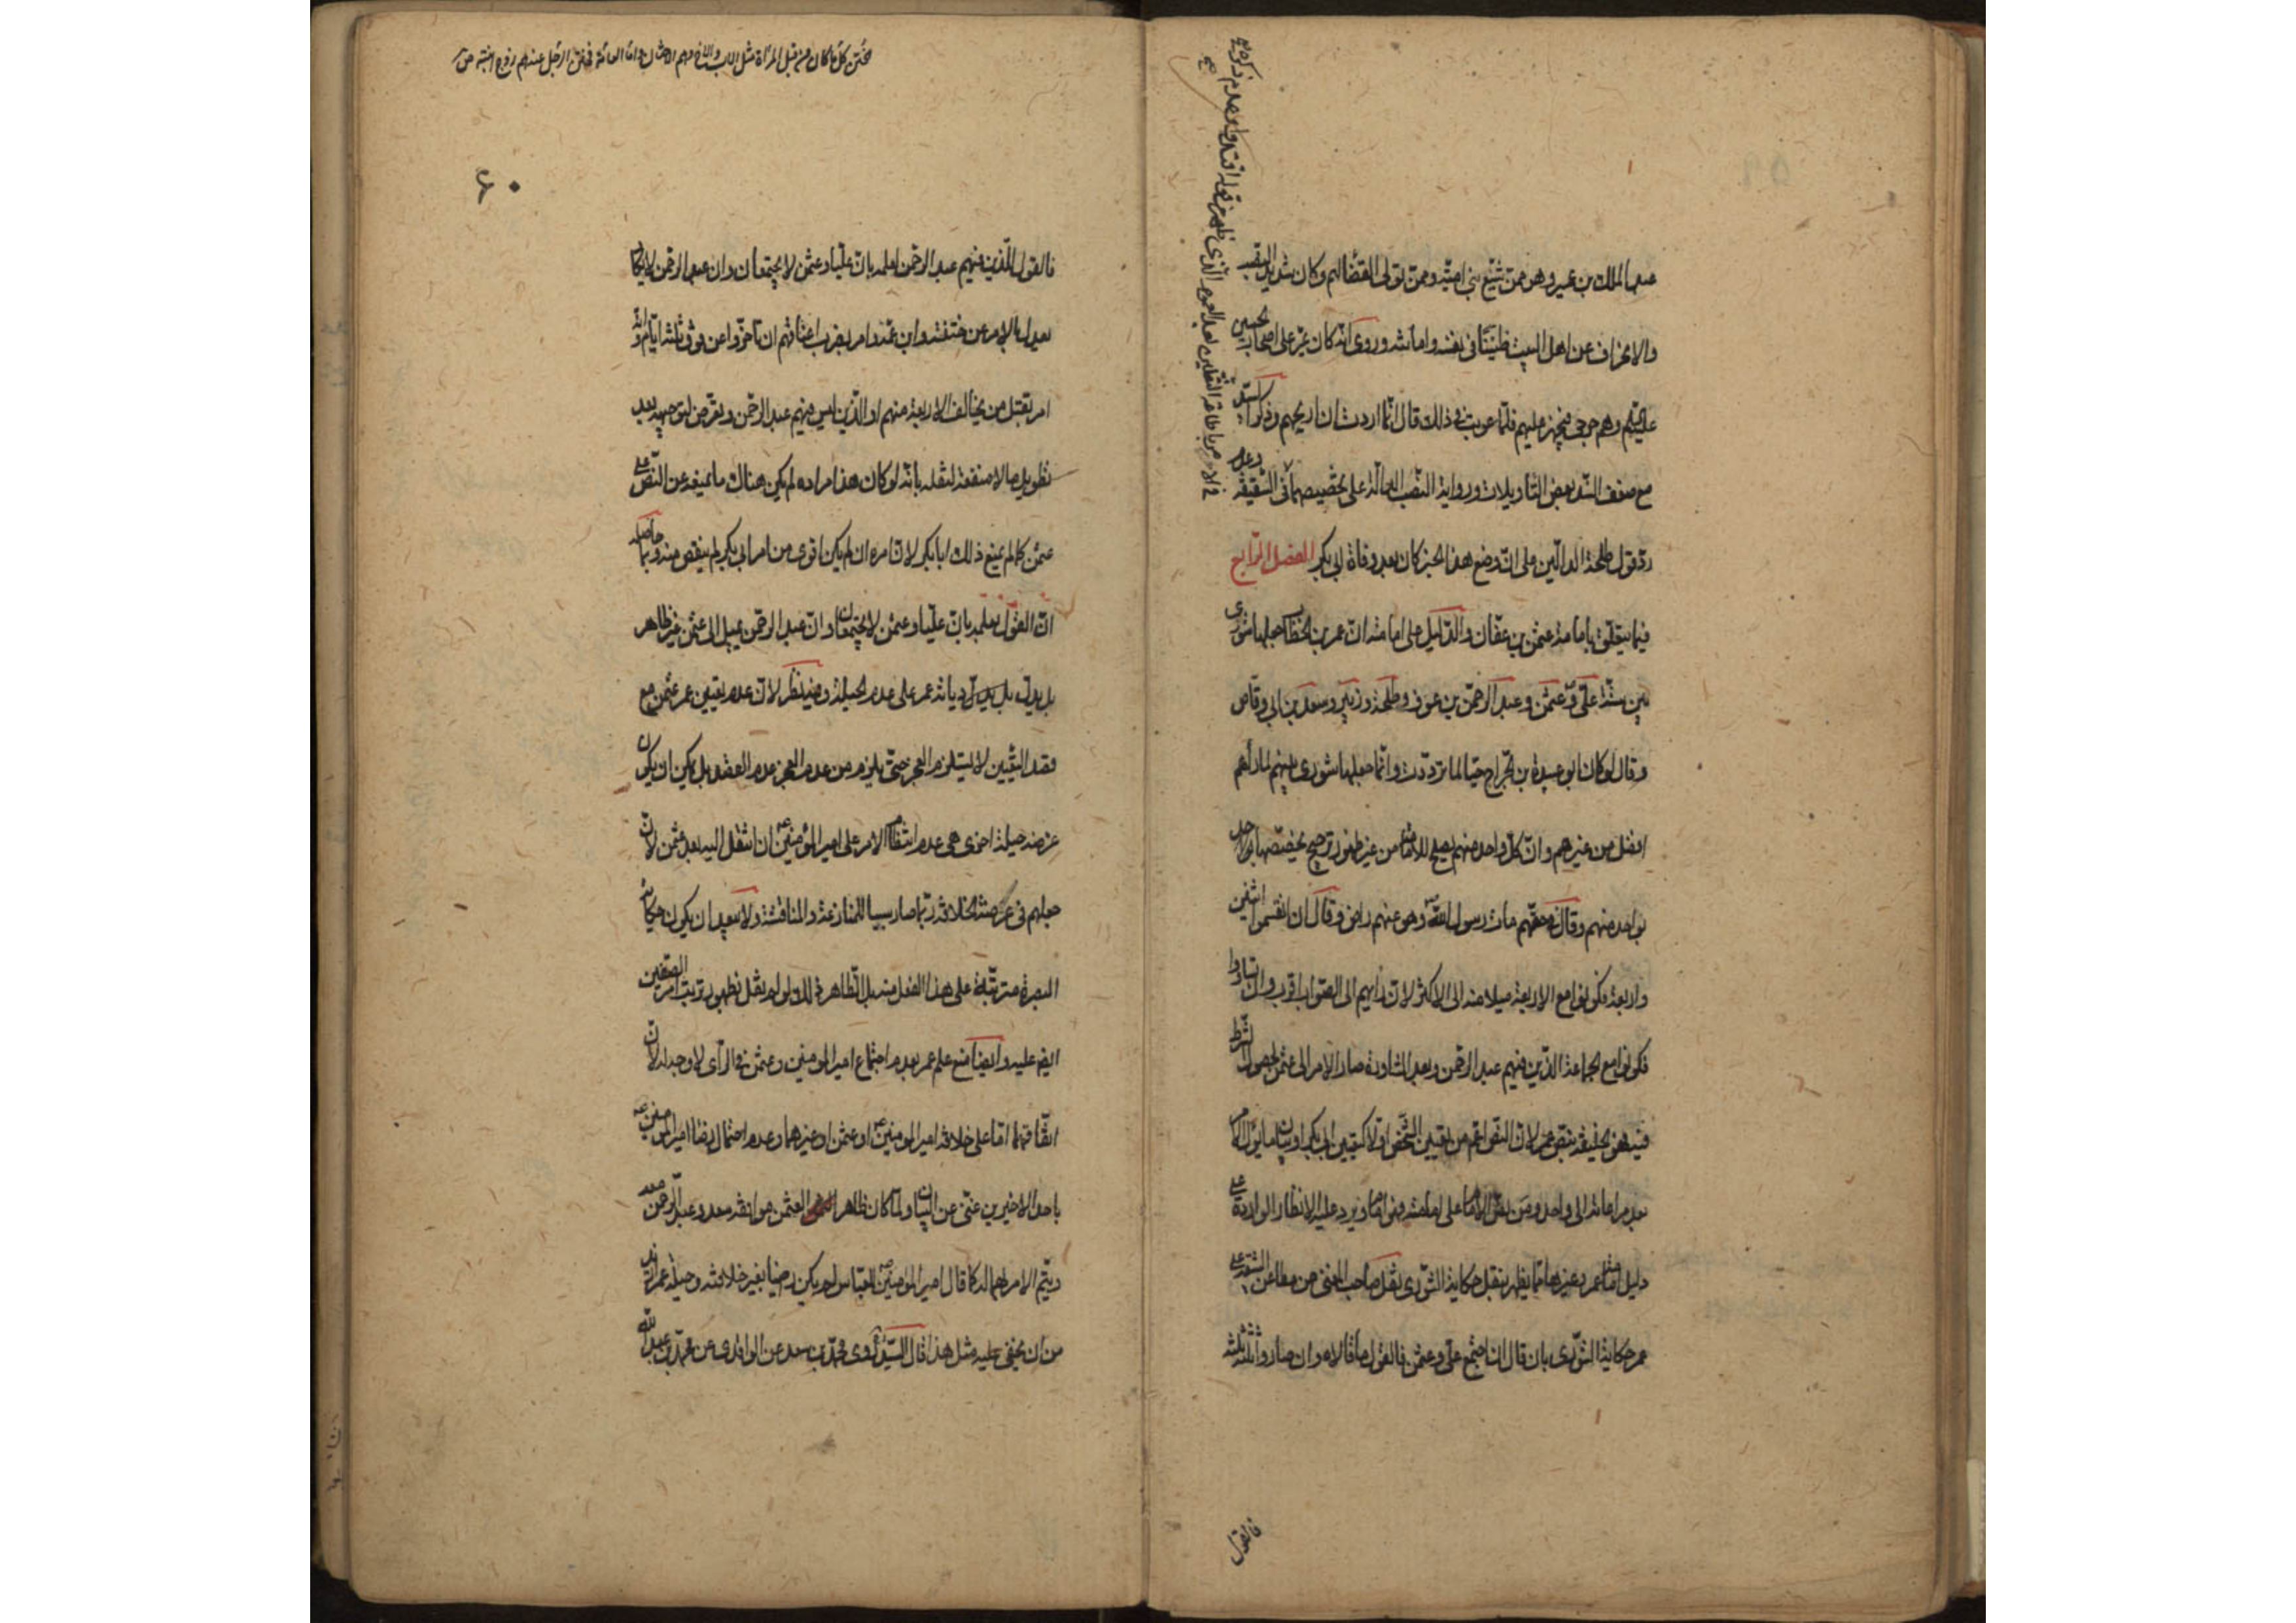 عبد الملك بن عمير وهو ممن شيّع بني اميّة وممن تولى القضا لهم وكان شديد النصب
والانحراف عن اهل البيت ظنينا في نفسه وامانته وروى انّه كان يمرّ على اصحاب الحسين
عليهم وهم جرحى فيجهز عليهم فلمّا عوتب في ذلك قال انّما اردت ان اريحهم وذكر السيد
مع ضعف السند بعض التأويلات ورواية النصب الدالّة على تخصيصهما في السقيفة
ردّ قول طلحة الدالّين على انّ وضع هذا الخبر كان بعد وفاة ابي بكر الفصل الرابع
فيما يتعلّق بامامة عثمن بن عفّان والدّليل على امامته انّ عمر بن الخطاب جعلها شورى
بين ستّة علىّ وعثمن وعبد الرحمن بن عوف وطلحة وزبير وسعد بن ابي وقاص
وقال لو كان ابو عبيدة بن الجراح حيّا لما تردّدت وانّما جعلها شورى بينهم لما رأهم
افضل من غيرهم وانّ كلّ واحد منهم يصلح للامامة من غير ظهور ترجيح يخصّصها بواحد
بواحد منهم وقال في حقهم مات رسول الله وهو عنهم راض وقال ان انقسموا اثنين
واربعة فكونوا مع الاربعة ميلا منه الى الاكثر لانّ رأيهم الى الصواب اقرب وان تساووا
فكونوا مع الجماعة الذين فيهم عبد الرحمن وبعد المشاورة صار الامر الى عثمن لحصول الشرط
فيه فهو خليفة بنصّ عمر لانّ النصّ اعمّ من تعيين الشخص اوّلا كتعيين ابي بكر او بيان ما يؤل اليه
بعد مراعاته الى واحد ومن نصّ الامام على امامته فهو امام ويرد عليه الانظار الواردة على
دليل امامة عمر وغيرها مما يظهر بنقل حكاية الشورى نقل صاحب المغني من مطاعن الشيعة على
عمر حكاية الشورى بان قال ان اجتمع علىّ وعثمن فالقول ما قالاه وان صاروا ثلثة ثلثة
فالقول
ختن كلّ ما كان من قبل المرأة مثل الاب والاخ وهم الاختان وامّا العامّة فختن الرجل عندهم زوج ابنته ص
۶۰
فالقول للّذين فيهم عبد الرحمن لعلمه بانّ عليّا وعثمن لا يجتمعان وان عبد الرحمن لا يكاد
يعدل بالامر عن ختنه وابن عمّه وامر بضرب اعناقهم ان تأخّروا عن فوق ثلثة ايّام وانّه
امر بقتل من يخالف الاربعة منهم او الّذين ليس فيهم عبد الرحمن وتعرض لتوجيهه بعد
تطويل بما لا منفعة لنقله بانّه لو كان هذا مراده لم يكن هناك ما يمنعه عن النّص على
عثمن كما لم يمنع ذلك ابا بكر لانّ امره ان لم يكن اقوى من امر ابي بكر لم ينقص منه وما حاصله
انّ القول بعلمه بانّ عليّا وعثمن لا يجتمعان وانّ عبد الرحمن يميل الى عثمن غير ظاهر
بل يدلّ ديانة عمر على عدم الحيلة وفيه نظر لانّ عدم تعيين عمر عثمن مع
فقد التعيين لا يستلزم العجز حتّى يلزم من عدم العجز عدم القصد بل يمكن ان يكون
غرضه حيلة اخرى هي عدم انتظام الامر على امير المؤمنين ان انتقل اليه بعد عثمن لانّ
جعلهم في عرضة الخلافة ربّما صار سببا للمنازعة والمناقشة ولا يبعد ان يكون حكاية
البصرة مترتّبة على هذا الفعل منه بل الظاهر ذلك ولو لم يقل بظهور ترتب امر الصفين
ايض عليه وايضا منع علم عمر بعدم اجتماع امير المومنين وعثمن في الرأى لا وجه له لانّ
اتّفاقهما امّا على خلافة امير المومنين او عثمن او غيرهما وعدم احتمال رضا امير المومنين
باحد الاخيرين غنىّ عن البيان ولمّا كان ظاهرا لعثمن موافقة سعد وعبد الرحمن
ويتّم الامر بهما له كما قال امير المؤمنين للعباس لم يكن رضيا بغير خلافته وحيلة عمر ازيد
من ان يخفى عليه مثل هذا قال السيّد روى محمّد بن سعد عن الواقدى عن محمّد بن عبد الله